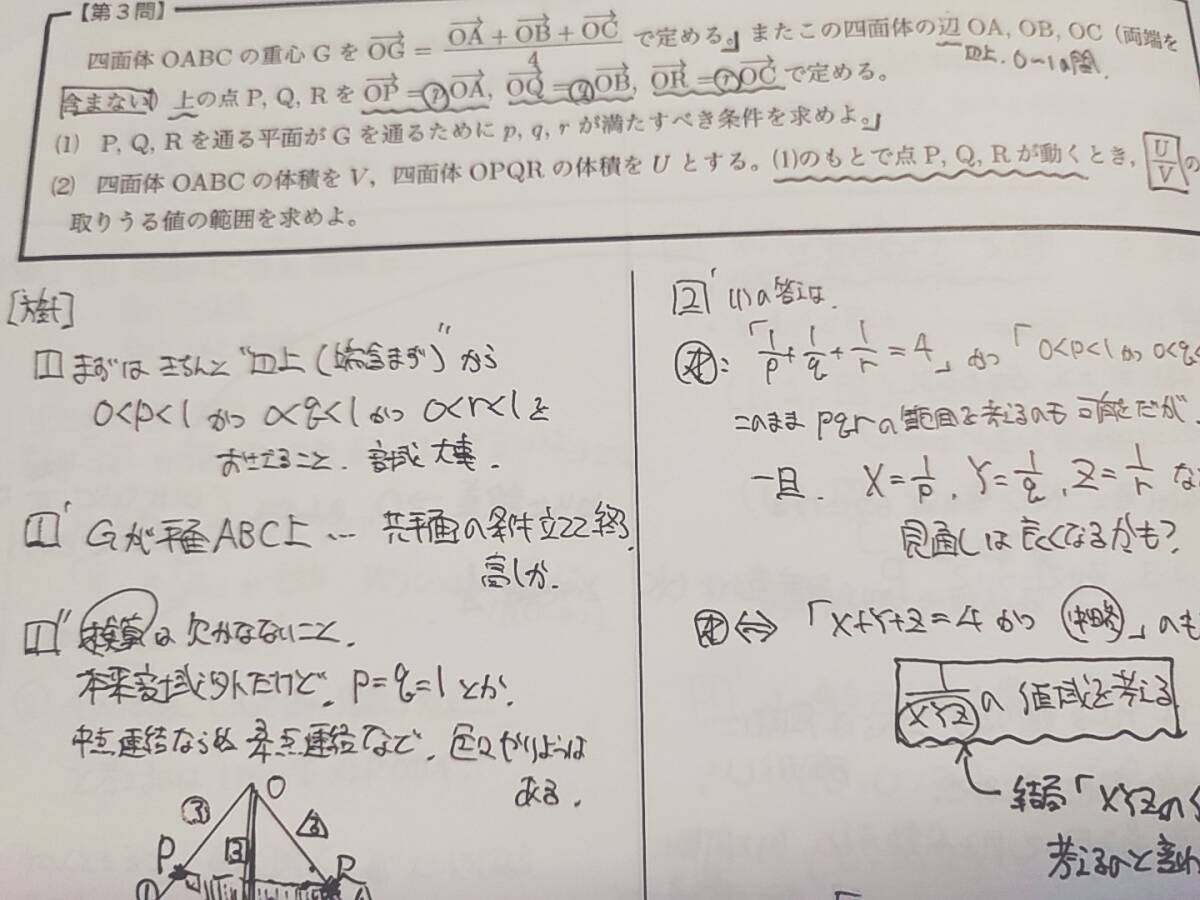 【第３問】
四面体 OABC の重心 G を OG = (OA + OB + OC)/4 で定める。」またこの四面体の辺 OA, OB, OC (両端を
辺上. 0〜1の間.
含まない) 上の点 P, Q, R を OP = pOA, OQ = qOB, OR = rOC で定める。
(1) P, Q, R を通る平面が G を通るために p, q, r が満たすべき条件を求めよ。」
(2) 四面体 OABC の体積を V, 四面体 OPQR の体積を U とする。(1)のもとで点 P, Q, R が動くとき, U/V の
取りうる値の範囲を求めよ。
[方針]
1 まずは きちんと "辺上(端含まず)" から
0<p<1 かつ 0<q<1 かつ 0<r<1 を
おさえること. 意識大事.
1' Gが平面ABC上 … 共平面の条件立てて終了.
1'' 検算は 欠かさないこと.
p=q=1 とか.
ある.
③ O 3
P 3 R
①
2' (1)の答えは.
「1/p + 1/q + 1/r = 4」 かつ 「0<p<1 かつ 0<q<
このまま pqrの範囲を考えるのも 可能だが
一旦. X=1/p, Y=1/q, Z=1/r な
見通しは 良くなるかも?
⇔ 「X+Y+Z=4 かつ (中略)」のも
1/XYZ の 値域を考える
結局「XYZの
考えるのと言わ